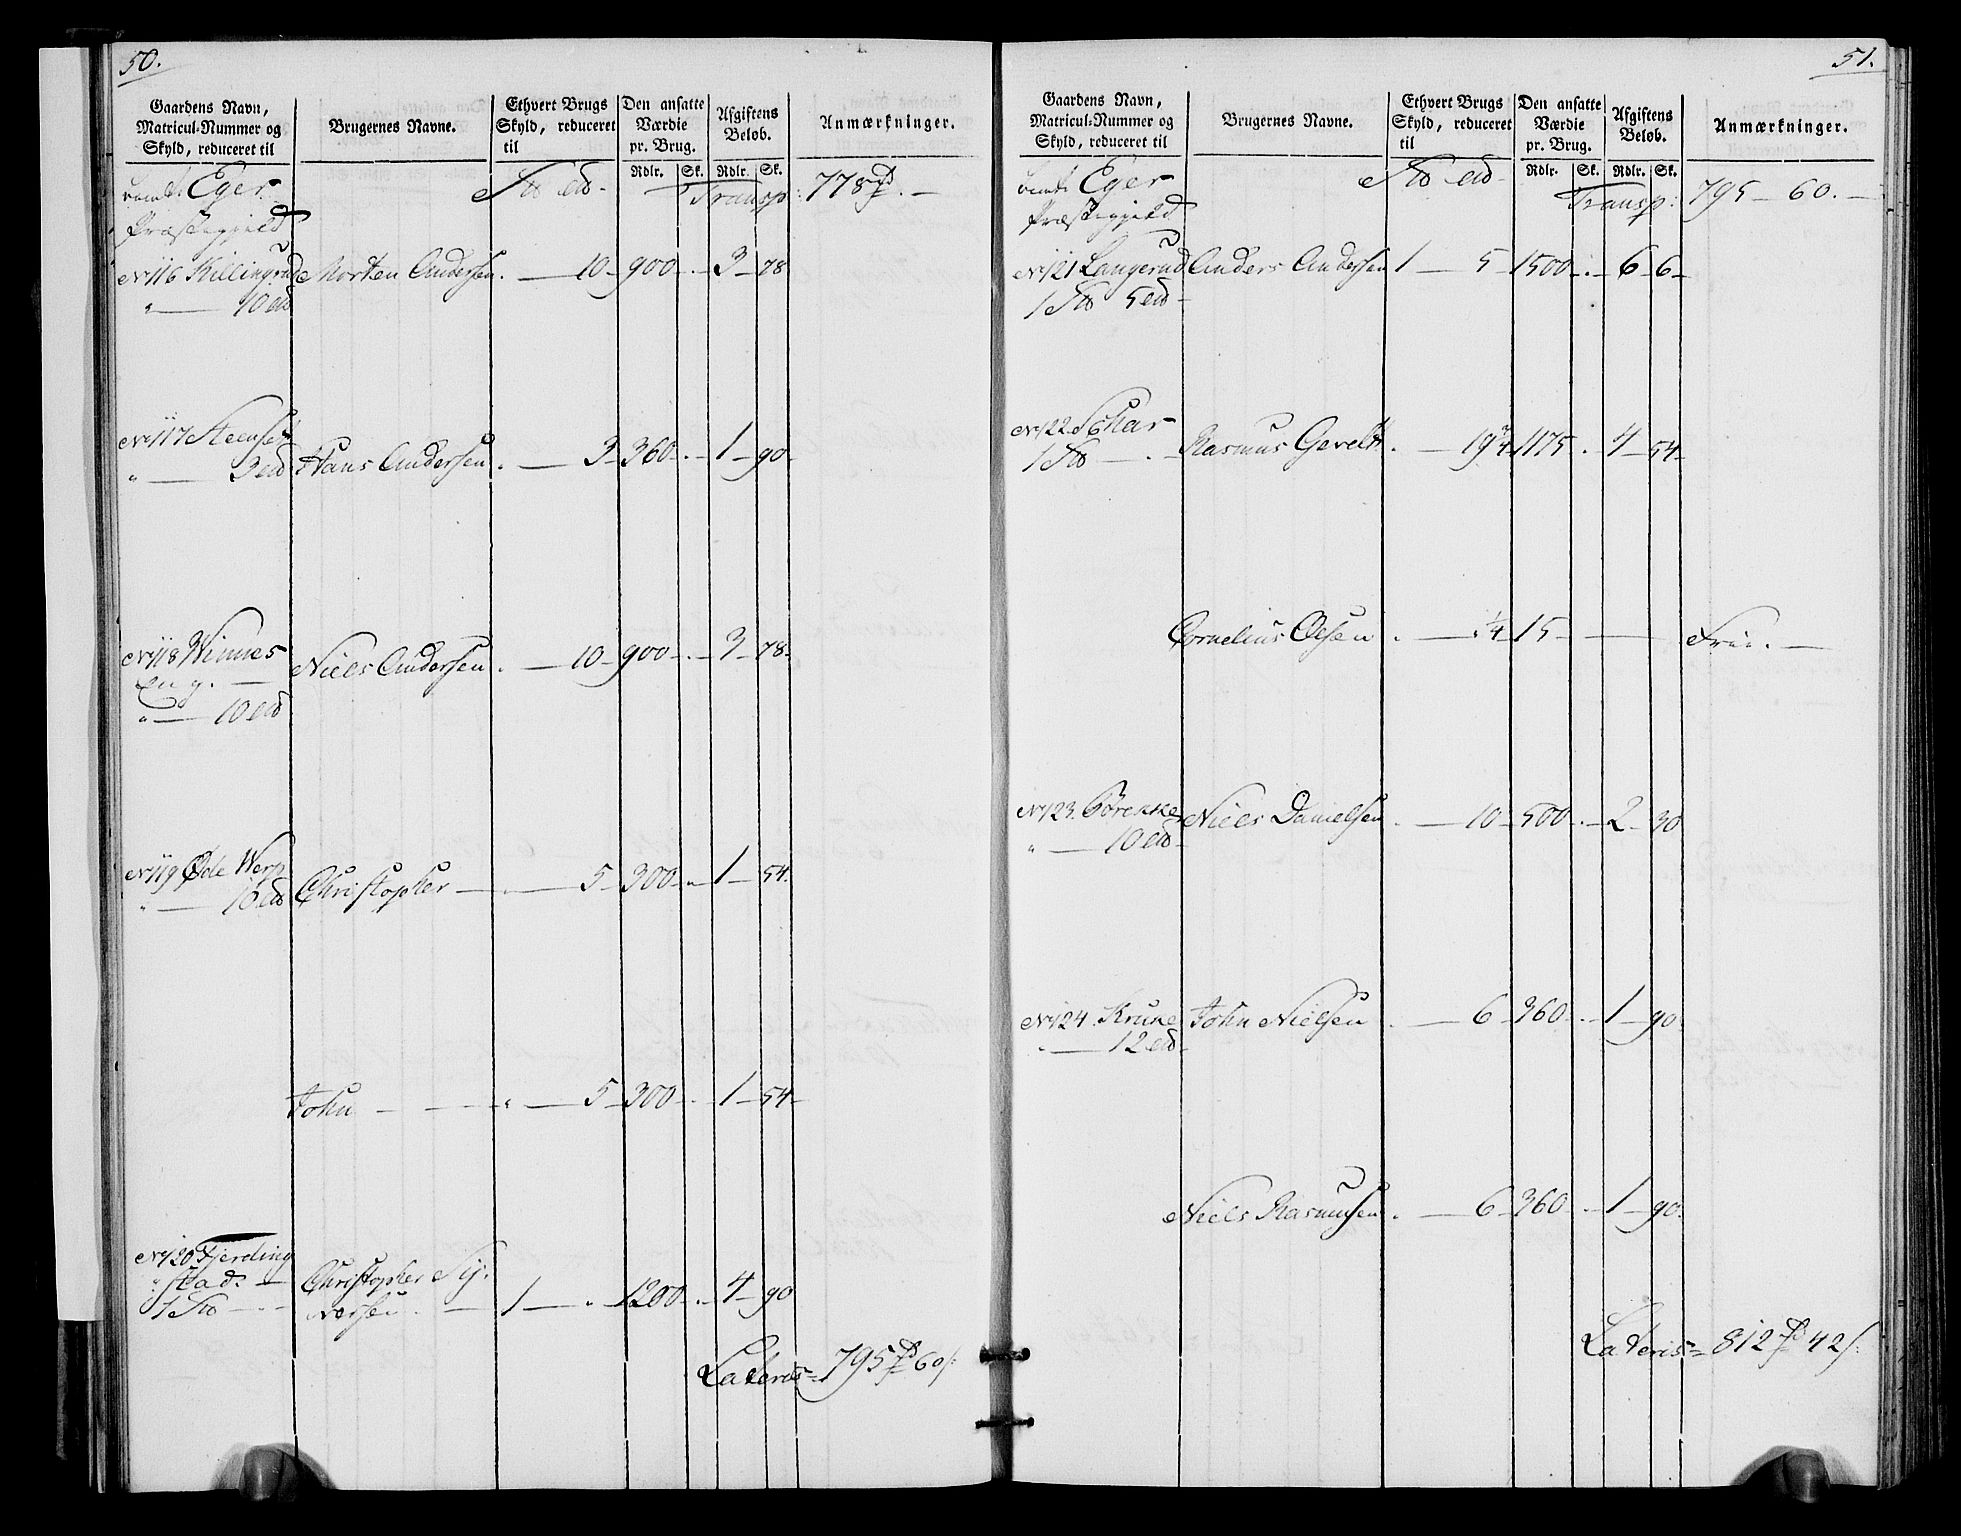 50.
Gaardens Navn, Matricul-Nummer og Skyld, reduceret til
Brugernes Navne.
Ethvert Brugs Skyld, reduceret til
Den ansatte Værdie pr. Brug.
Afgiftens Beløb.
Anmærkninger.
Rdlr. Sk. Rdlr. Sk.
Eger Transp: 778
Præstegjeld
No 116 Killingrud Morten Andersen . — 10 — 900 — . — 3 — 78
" — 10
No 117 Steenset
" — 3 Hans Andersen . — 3 — 360 — . — 1 — 90 —
No 118 Winnes Niels Andersen . — 10 — 900 — . — 3 — 78 —
Eng. —
" — 10
No 119 Øde Werp Christopher — . — 5 — 300 — . — 1 — 54.
" — 10
John — — " — 5 — 300 — . — 1 — 54 —
No 120 Fjerding
stad — Christopher
1 — 1 — " — 1200 — . — 4 — 90
Lateris = 795 60
51.
Gaardens Navn, Matricul-Nummer og Skyld, reduceret til
Brugernes Navne.
Ethvert Brugs Skyld, reduceret til
Den ansatte Værdie pr. Brug.
Afgiftens Beløb.
Anmærkninger.
Rdlr. Sk. Rdlr. Sk.
Eger Transp: 795 — 60. —
Præstegjeld
No 121 Langerud Anders Andersen 1 — 5 — 1500 — . — 6 — 6 —
1 5
No 122 Rasmus . — 19 3/4 — 1175 . — 4 — 54 —
1
Cornelius Olsen . — 1/4 — 15 — — Frie. —
No 123. Niels Danielsen . — 10 — 500 — . — 2 — 30
" — 10
No 124. John Nielsen . — 6 — 360 — . — 1 — 90.
" — 12
Niels Rasmusen . — 6 — 360 — . — 1 — 90.
Lateris = 812 42